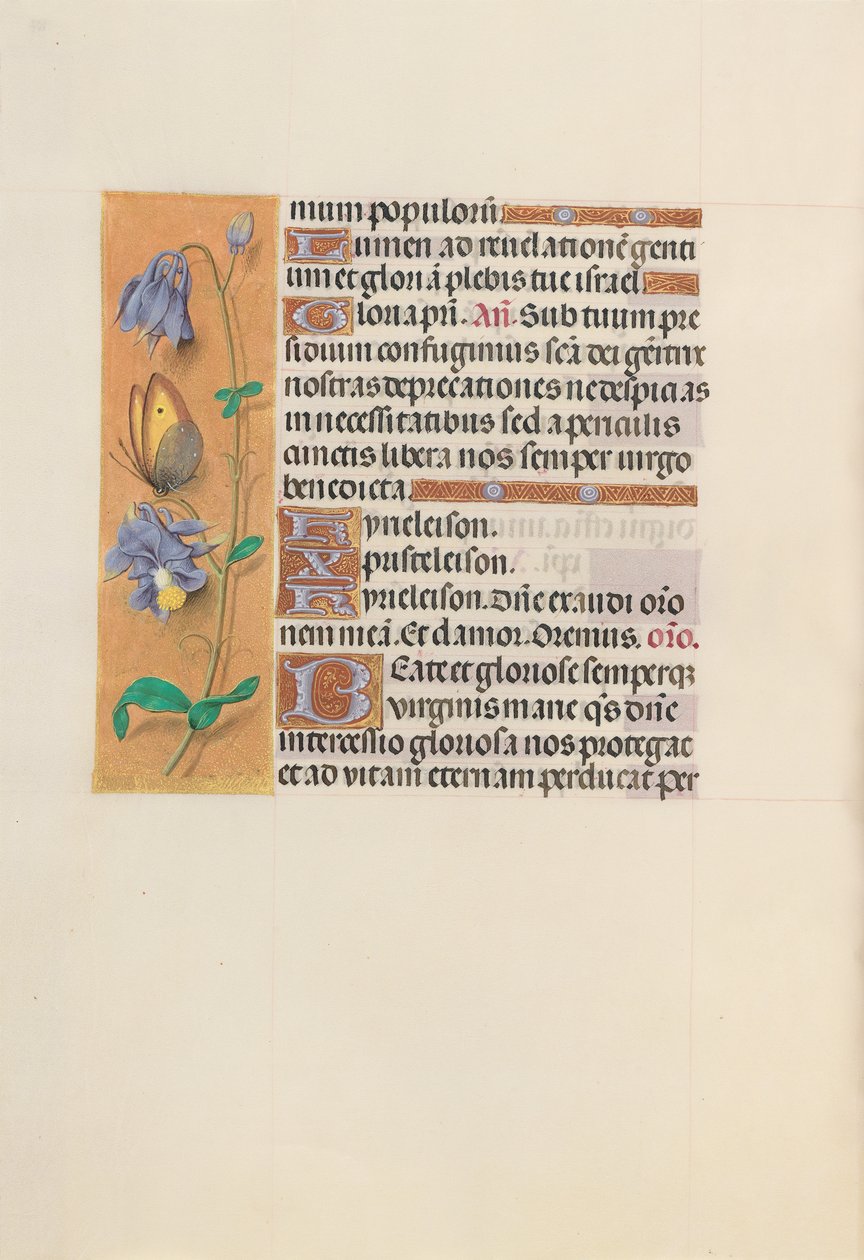 mium populoru᷑.
Lumen ad reuelationē genti
um et gloriā plebis tue israel.
Gloria pr̄i. Añ. Sub tuum pre
sidium confugimus scā dei genitrix
nostras deprecationes ne despicias
in necessitatibus sed a periculis
cunctis libera nos semper uirgo
benedicta.
Kyrieleison.
Xpristeleison.
Kyrieleison. Dñe exaudi orō
nem meā. Et clamor. Oremus. orō.
Beate et gloriose semperqꝫ
virginis marie q̄s dñe
intercessio gloriosa nos protegat
et ad vitam eternam perducat per